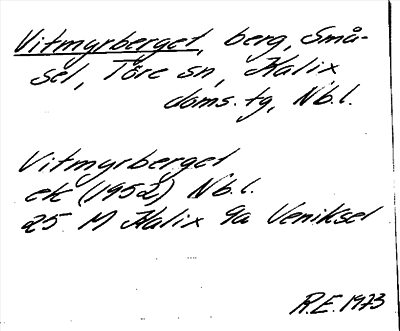 Vitmyrberget, berg, Små-
sel, Töre sn, Kalix
doms. tg, Nb. l.
Vitmyrberget
ek (1952) Nb. l.
25 M Kalix 9a Veniksel
R.E. 1973